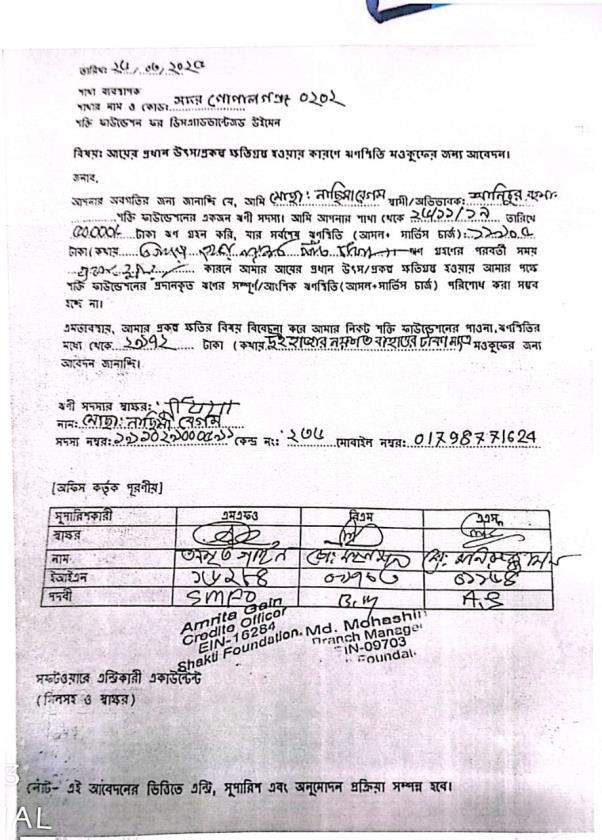 তারিখঃ ২৪/০৬/২০২৫
শাখা ব্যবস্থাপক
শাখার নাম ও কোডঃ সদর গোপালগঞ্জ ০২০২
শক্তি ফাউন্ডেশন ফর ডিসএ্যাডভান্টেজড উইমেন
বিষয়ঃ আয়ের প্রধান উৎস/প্রকল্প ক্ষতিগ্রস্ত হওয়ার কারণে ঋণস্থিতি মওকুফের জন্য আবেদন।
জনাব,
আপনার অবগতির জন্য জানাচ্ছি যে, আমি মোছা: নাছিমা বেগম স্বামী/অভিভাবকঃ আনিচুর রহমান
শক্তি ফাউন্ডেশনের একজন ঋণী সদস্য। আমি আপনার শাখা থেকে তারিখে
টাকা ঋণ গ্রহন করি, যার সর্বশেষ ঋণস্থিতি (আসল+ সার্ভিস চার্জ)ঃ
টাকা (কথায় ঋণ গ্রহণের পরবর্তী সময়
কারনে আমার আয়ের প্রধান উৎস/প্রকল্প ক্ষতিগ্রস্ত হওয়ায় আমার পক্ষে
শক্তি ফাউন্ডেশনের প্রদানকৃত ঋণের সম্পূর্ণ/আংশিক ঋণস্থিতি (আসল+সার্ভিস চার্জ) পরিশোধ করা সম্ভব
হচ্ছে না।
এমতাবস্থায়, আমার প্রকল্প ক্ষতির বিষয় বিবেচনা করে আমার নিকট শক্তি ফাউন্ডেশনের পাওনা ঋণস্থিতির
মধ্যে থেকে ২৯৭২ টাকা (কথায় দুই হাজার নয়শত বাহাত্তর টাকা মাত্র মওকুফের জন্য
আবেদন জানাচ্ছি।
ঋণী সদস্যর স্বাক্ষরঃ
নামঃ মোছা: নাছিমা বেগম
সদস্য নম্বরঃ কেন্দ্র নংঃ ২৩৫ মোবাইল নম্বরঃ 01798771624
[অফিস কর্তৃক পূরণীয়]
সুপারিশকারী এমএফও বিএম এএস
স্বাক্ষর
নাম অমৃত গাইন
ইআইএন ১৬২৮৪ ০৯৭০৩
পদবী SMFO B.M A.S
Amrita Gain
Credito Officer
EIN-16284
Shakti Foundation.
Md. Mohashin
Branch Manager
EIN-09703
Foundat
সফটওয়ারে এন্ট্রিকারী একাউন্টেন্ট
(সিলসহ ও স্বাক্ষর)
নোট- এই আবেদনের ভিত্তিতে এন্ট্রি, সুপারিশ এবং অনুমোদন প্রক্রিয়া সম্পন্ন হবে।
AL